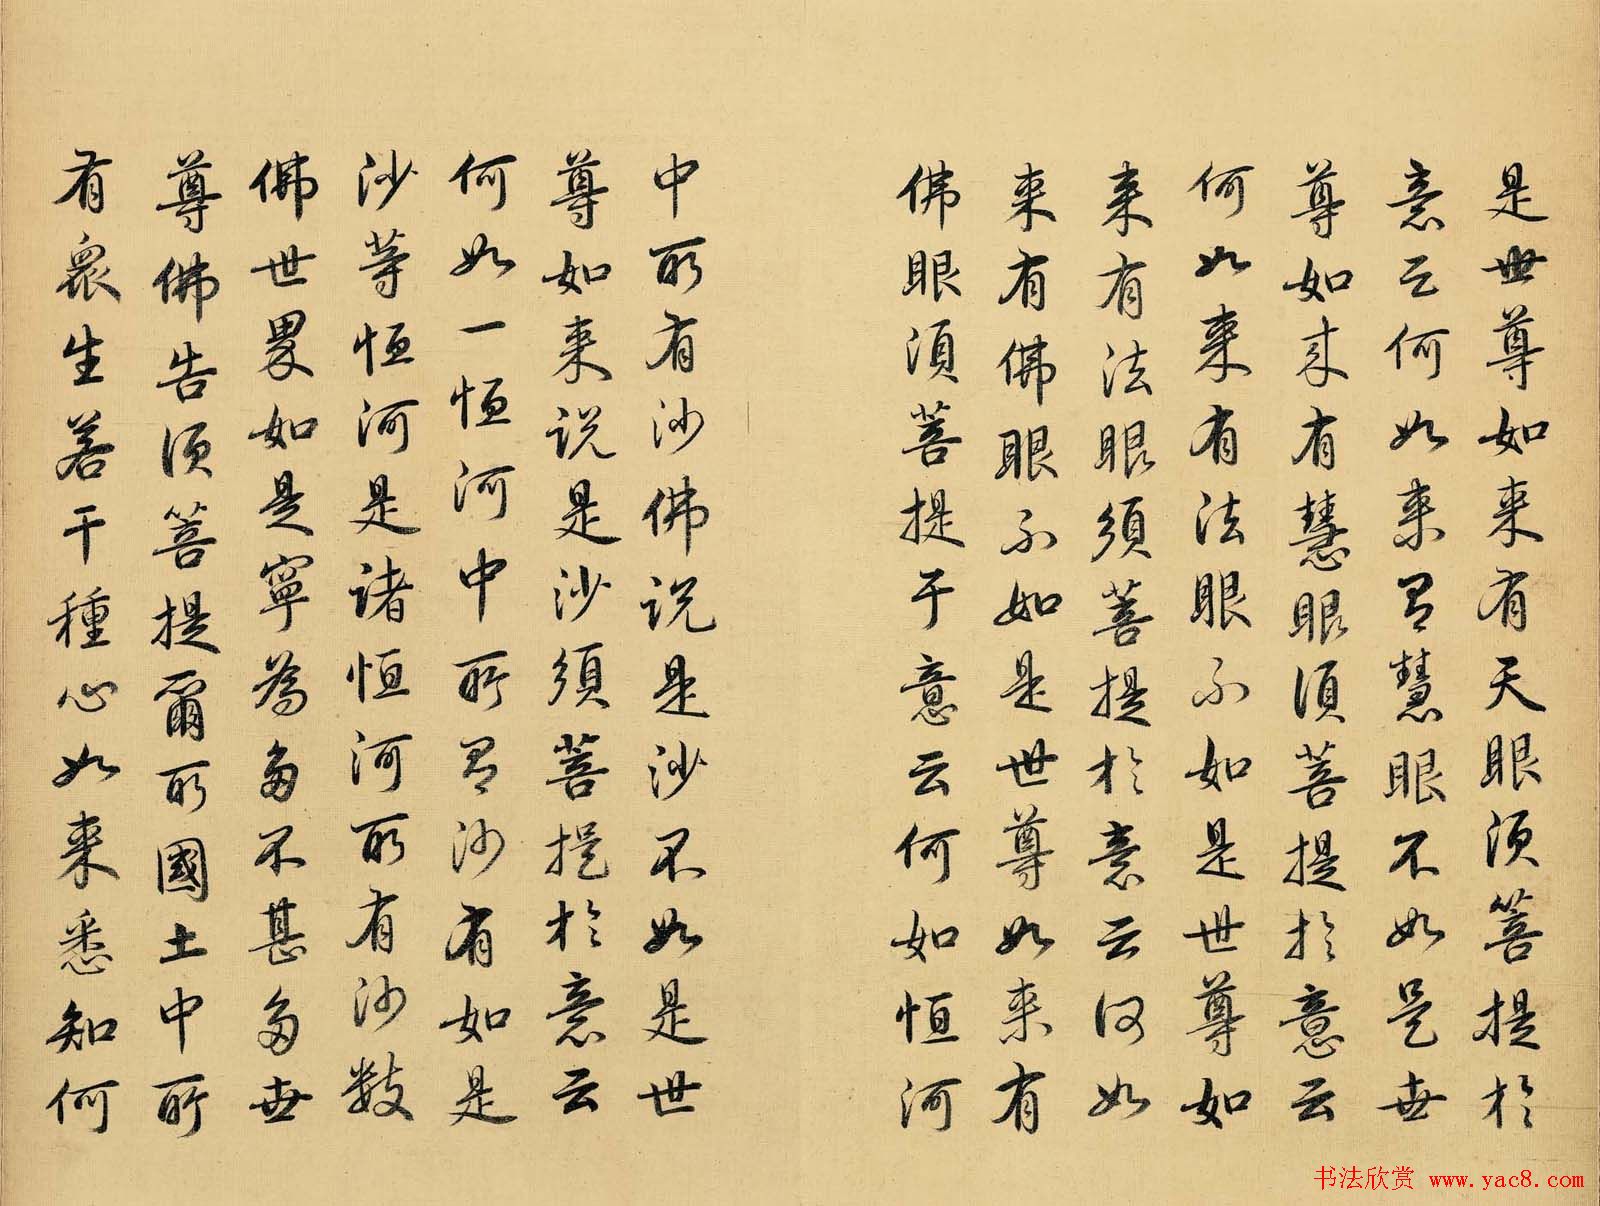 是世尊如来有天眼須菩提於
意云何如来有慧眼不如是世
尊如来有慧眼須菩提於意云
何如来有法眼不如是世尊如
来有法眼須菩提於意云何如
来有佛眼不如是世尊如来有
佛眼須菩提于意云何如恒河
中所有沙佛说是沙不如是世
尊如来说是沙須菩提於意云
何如一恒河中所有沙有如是
沙等恒河是諸恒河所有沙數
佛世界如是寧為多不甚多世
尊佛告須菩提爾所國土中所
有衆生若干種心如来悉知何
书法欣赏 www.yac8.com